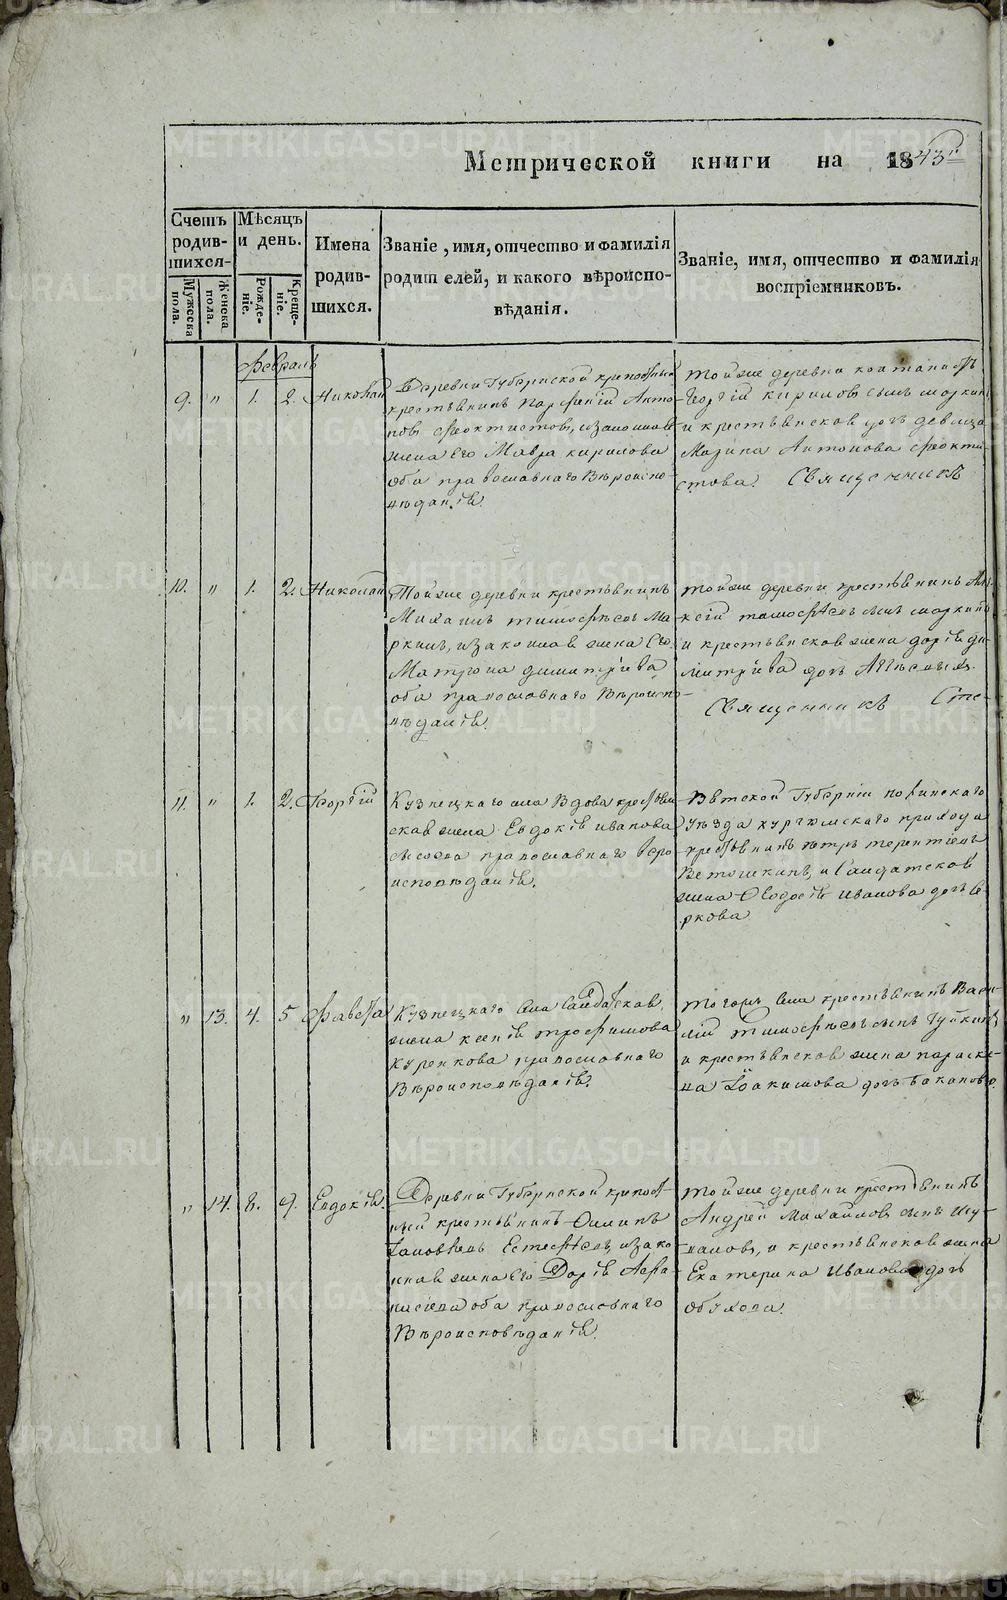 Метрической книги на 1843 г.
Счетъ родив-шихся.
Мужеска пола.
Женска пола.
Мѣсяцъ и день.
Рожде-ніе.
Креще-ніе.
Имена родив-шихся.
Званіе, имя, отчество и фамилія родителей, и какого вѣроиспо-вѣданія.
Званіе, имя, отчество и фамилія воспріемниковъ.
Февраль
9. " 1. 2. Николай
Деревни Губернской
крестьянинъ Парфеній Анто-
новъ Феоктистовъ, и законная
жена Его Мавра Кирилова
оба православнаго Вѣроиспо-
вѣданія.
той же деревни
Георгій Кириловъ сынъ
и крестьянская дочь девица
Марина Антонова Феокти-
стова. Священникъ
10. " 1. 2. Николай
Той же деревни крестьянинъ
Михаилъ Тимофѣевъ Ма-
ркинъ, и законная жена Его
Матрона Димитріева
оба православнаго Вѣроиспо-
вѣданія.
той же деревни крестьянинъ Але-
ксѣй Тимофѣевъ сынъ Маркинъ
и крестьянская жена Дарія Ди-
митріева дочь
Священникъ Сте-
11. " 1. 2. Георгій
Кузнецкаго села Вдова крестьян
ская жена Евдокія Иванова
православнаго веро
исповѣданія.
Вятской Губерніи
Уѣзда прихода
крестьянинъ Петръ Терентіевъ
Ветошкинъ, и Салдатская
жена Феодосія Иванова дочь
ркова
" 13. 4. 5 Фавста
Кузнецкаго села Салдатская
жена Ксенія Трофимова
Куренкова православнаго
Вѣроисповѣданія.
того же села крестьянинъ Васи-
лій Тимофѣевъ сынъ
и крестьянская жена Параске-
ва Іоакимова дочь
" 14. 8. 9. Евдокія.
Деревни Губернской
крестьянинъ Филипъ
и зако
нная жена его Дарія Афа-
насіева оба православнаго
Вѣроисповѣданія.
той же деревни крестьянинъ
Андрей Михайловъ сынъ
и крестьянская жена
Екатерина Иванова дочь
Обухова.
METRIKI.GASO-URAL.RU